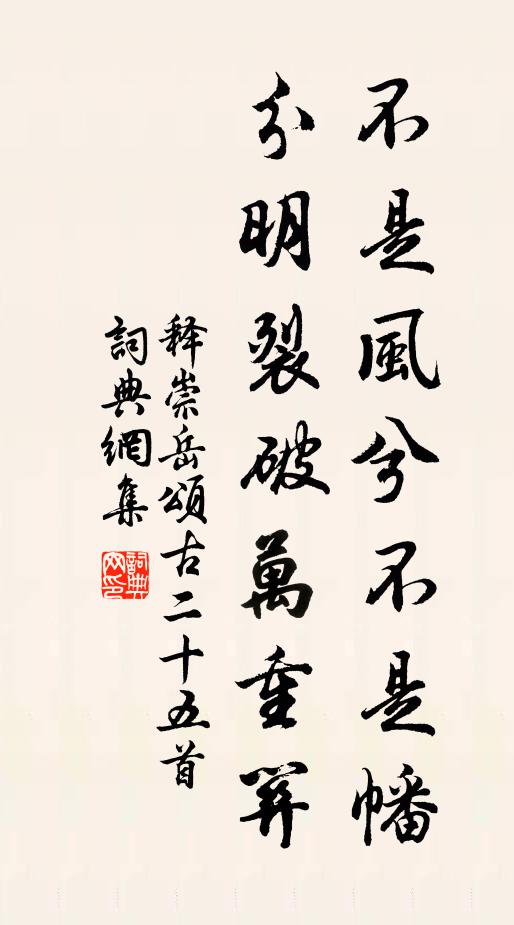 不是風兮不是幡
分明裂破萬重關
释崇岳頌古二十五首
詞典網集
詞典
网印